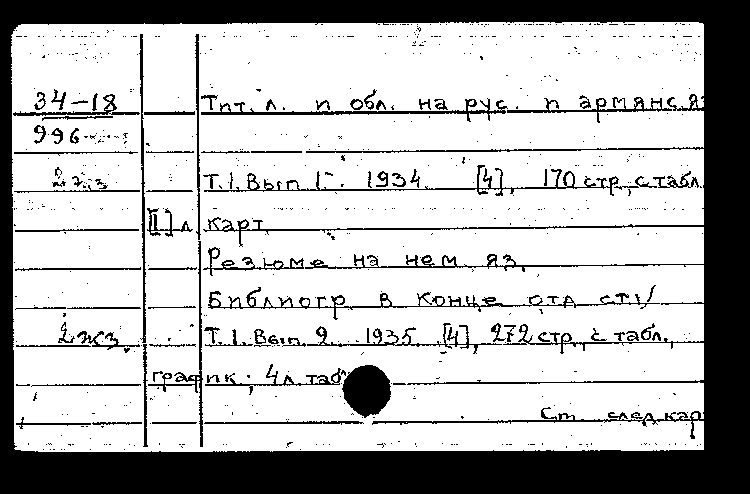 34-18 Тит. л. и обл. на рус. и армянс. яз
996
2 экз Т. 1. Вып 1. 1934 [4], 170 стр, с табл.
[1] л карт
Резюме на нем яз.
Библиогр в конце отд ст/
2 экз. Т. 1. Вып. 2 1935 [4], 272 стр, с табл.,
график; 4 л. таб
См след кар